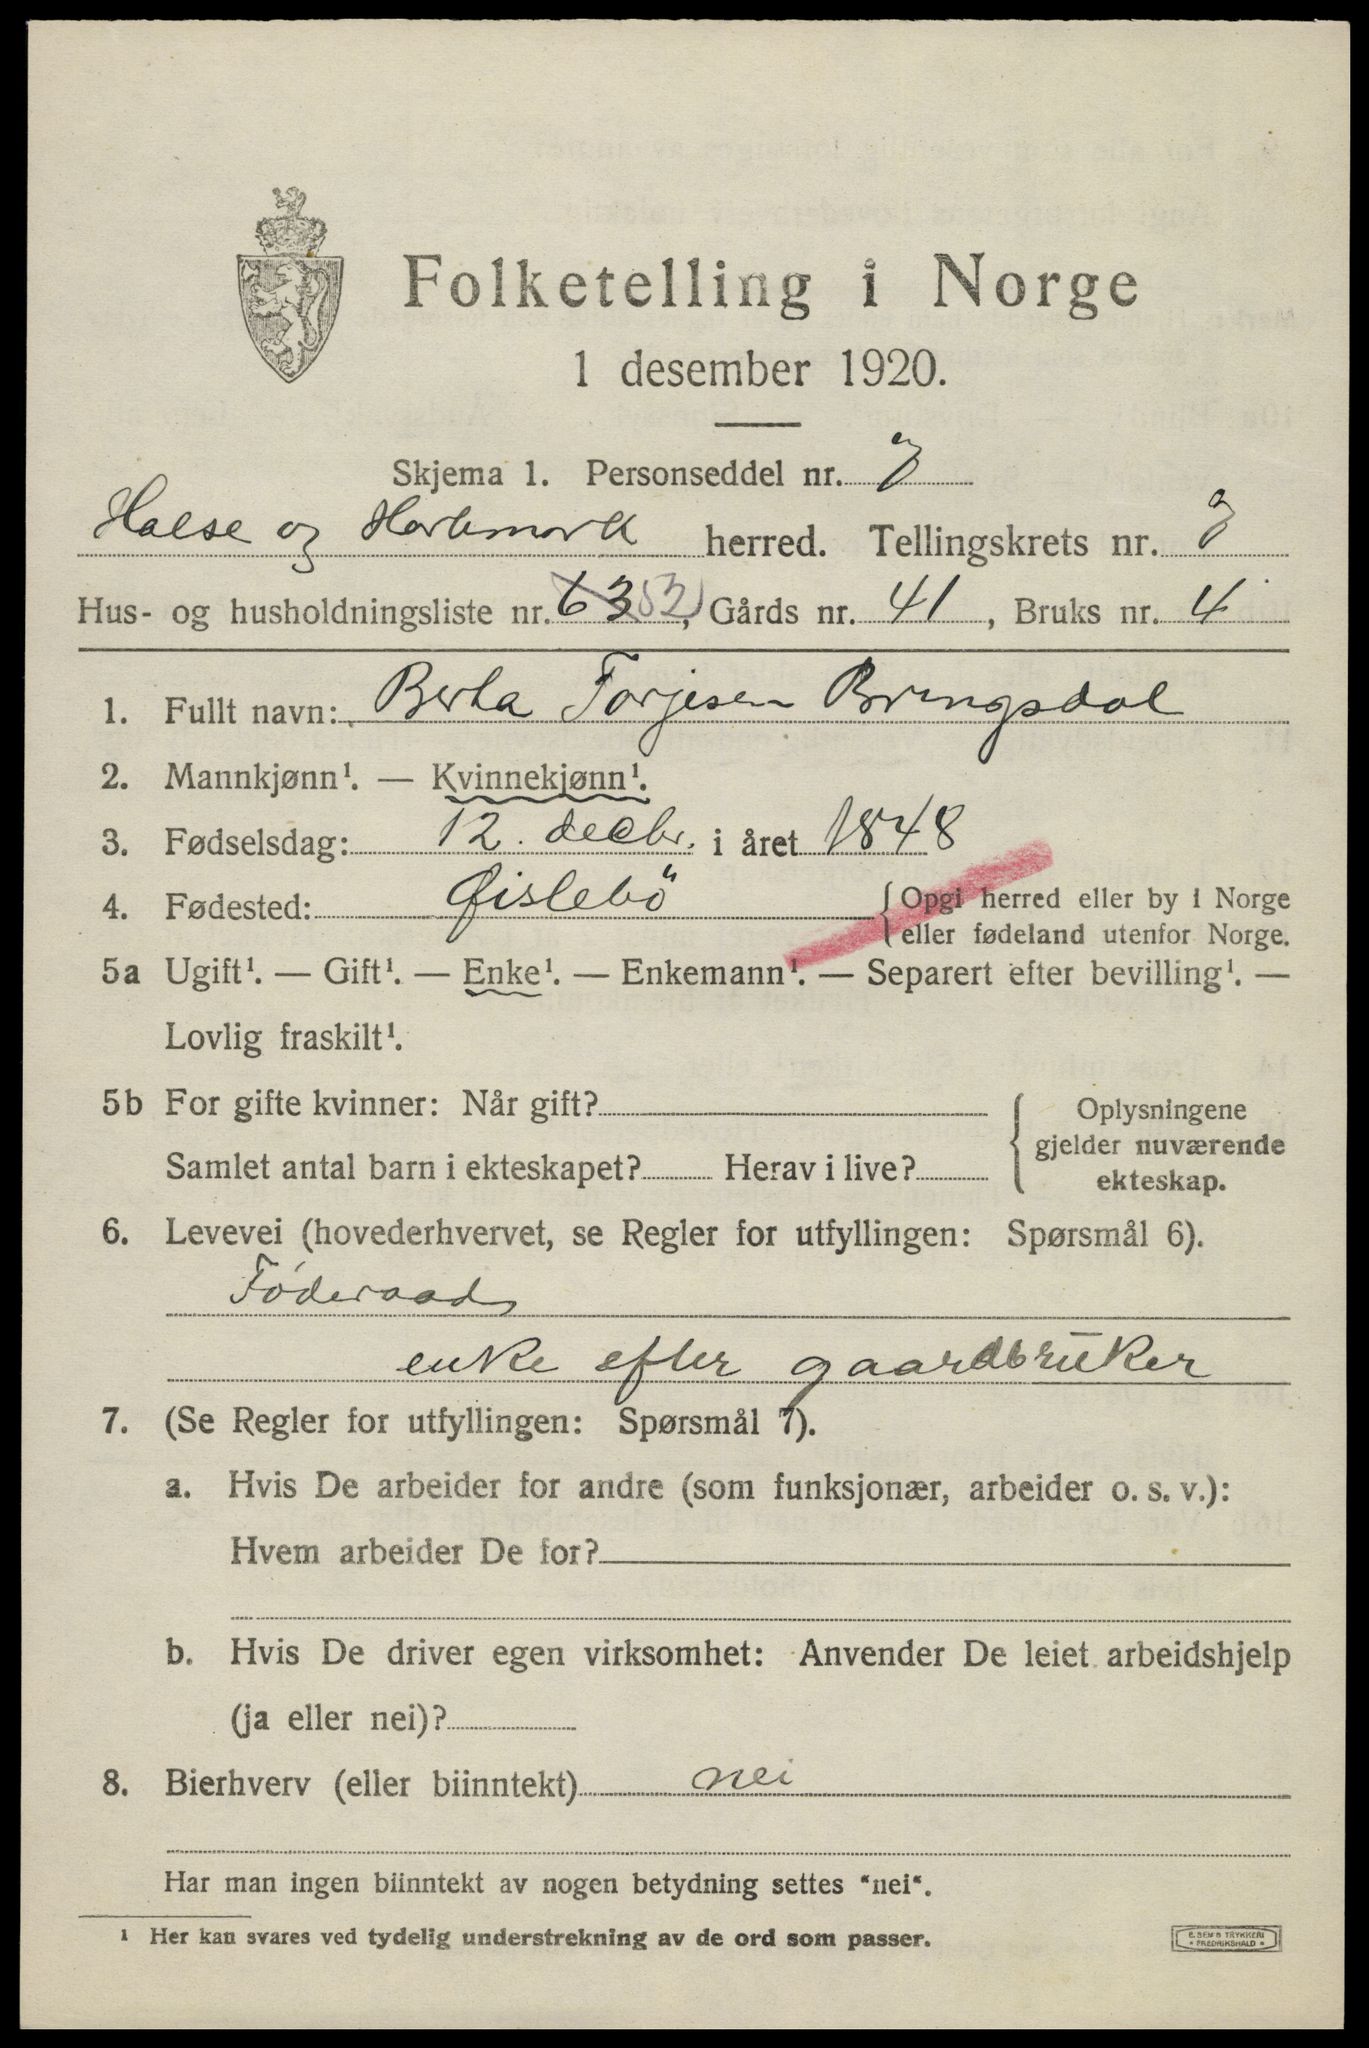 Folketelling i Norge
1 desember 1920.
Skjema 1. Personseddel nr. 7
Halse og Harkmark herred. Tellingskrets nr. 7
Hus- og husholdningsliste nr. 63 52, Gårds nr. 41, Bruks nr. 4
1. Fullt navn: Berta Torjesen Bringsdal
2. Mannkjønn¹. — Kvinnekjønn¹.
3. Fødselsdag: 12. decbr. i året 1848
4. Fødested: Øislebö {Opgi herred eller by i Norge
eller fødeland utenfor Norge.
5a Ugift¹. — Gift¹. — Enke¹. — Enkemann¹. — Separert efter bevilling¹. —
Lovlig fraskilt¹.
5b For gifte kvinner: Når gift?
Samlet antal barn i ekteskapet? Herav i live?
{ Oplysningene
gjelder nuværende
ekteskap.
6. Levevei (hovederhvervet, se Regler for utfyllingen: Spørsmål 6).
Föderaads
enke efter gaardbruker
7. (Se Regler for utfyllingen: Spørsmål 7).
a. Hvis De arbeider for andre (som funksjonær, arbeider o. s. v.):
Hvem arbeider De for?
b. Hvis De driver egen virksomhet: Anvender De leiet arbeidshjelp
(ja eller nei)?
8. Bierhverv (eller biinntekt) nei
Har man ingen biinntekt av nogen betydning settes "nei".
¹ Her kan svares ved tydelig understrekning av de ord som passer.
E. SEM'S TRYKKERI
* FREDRIKSHALD *